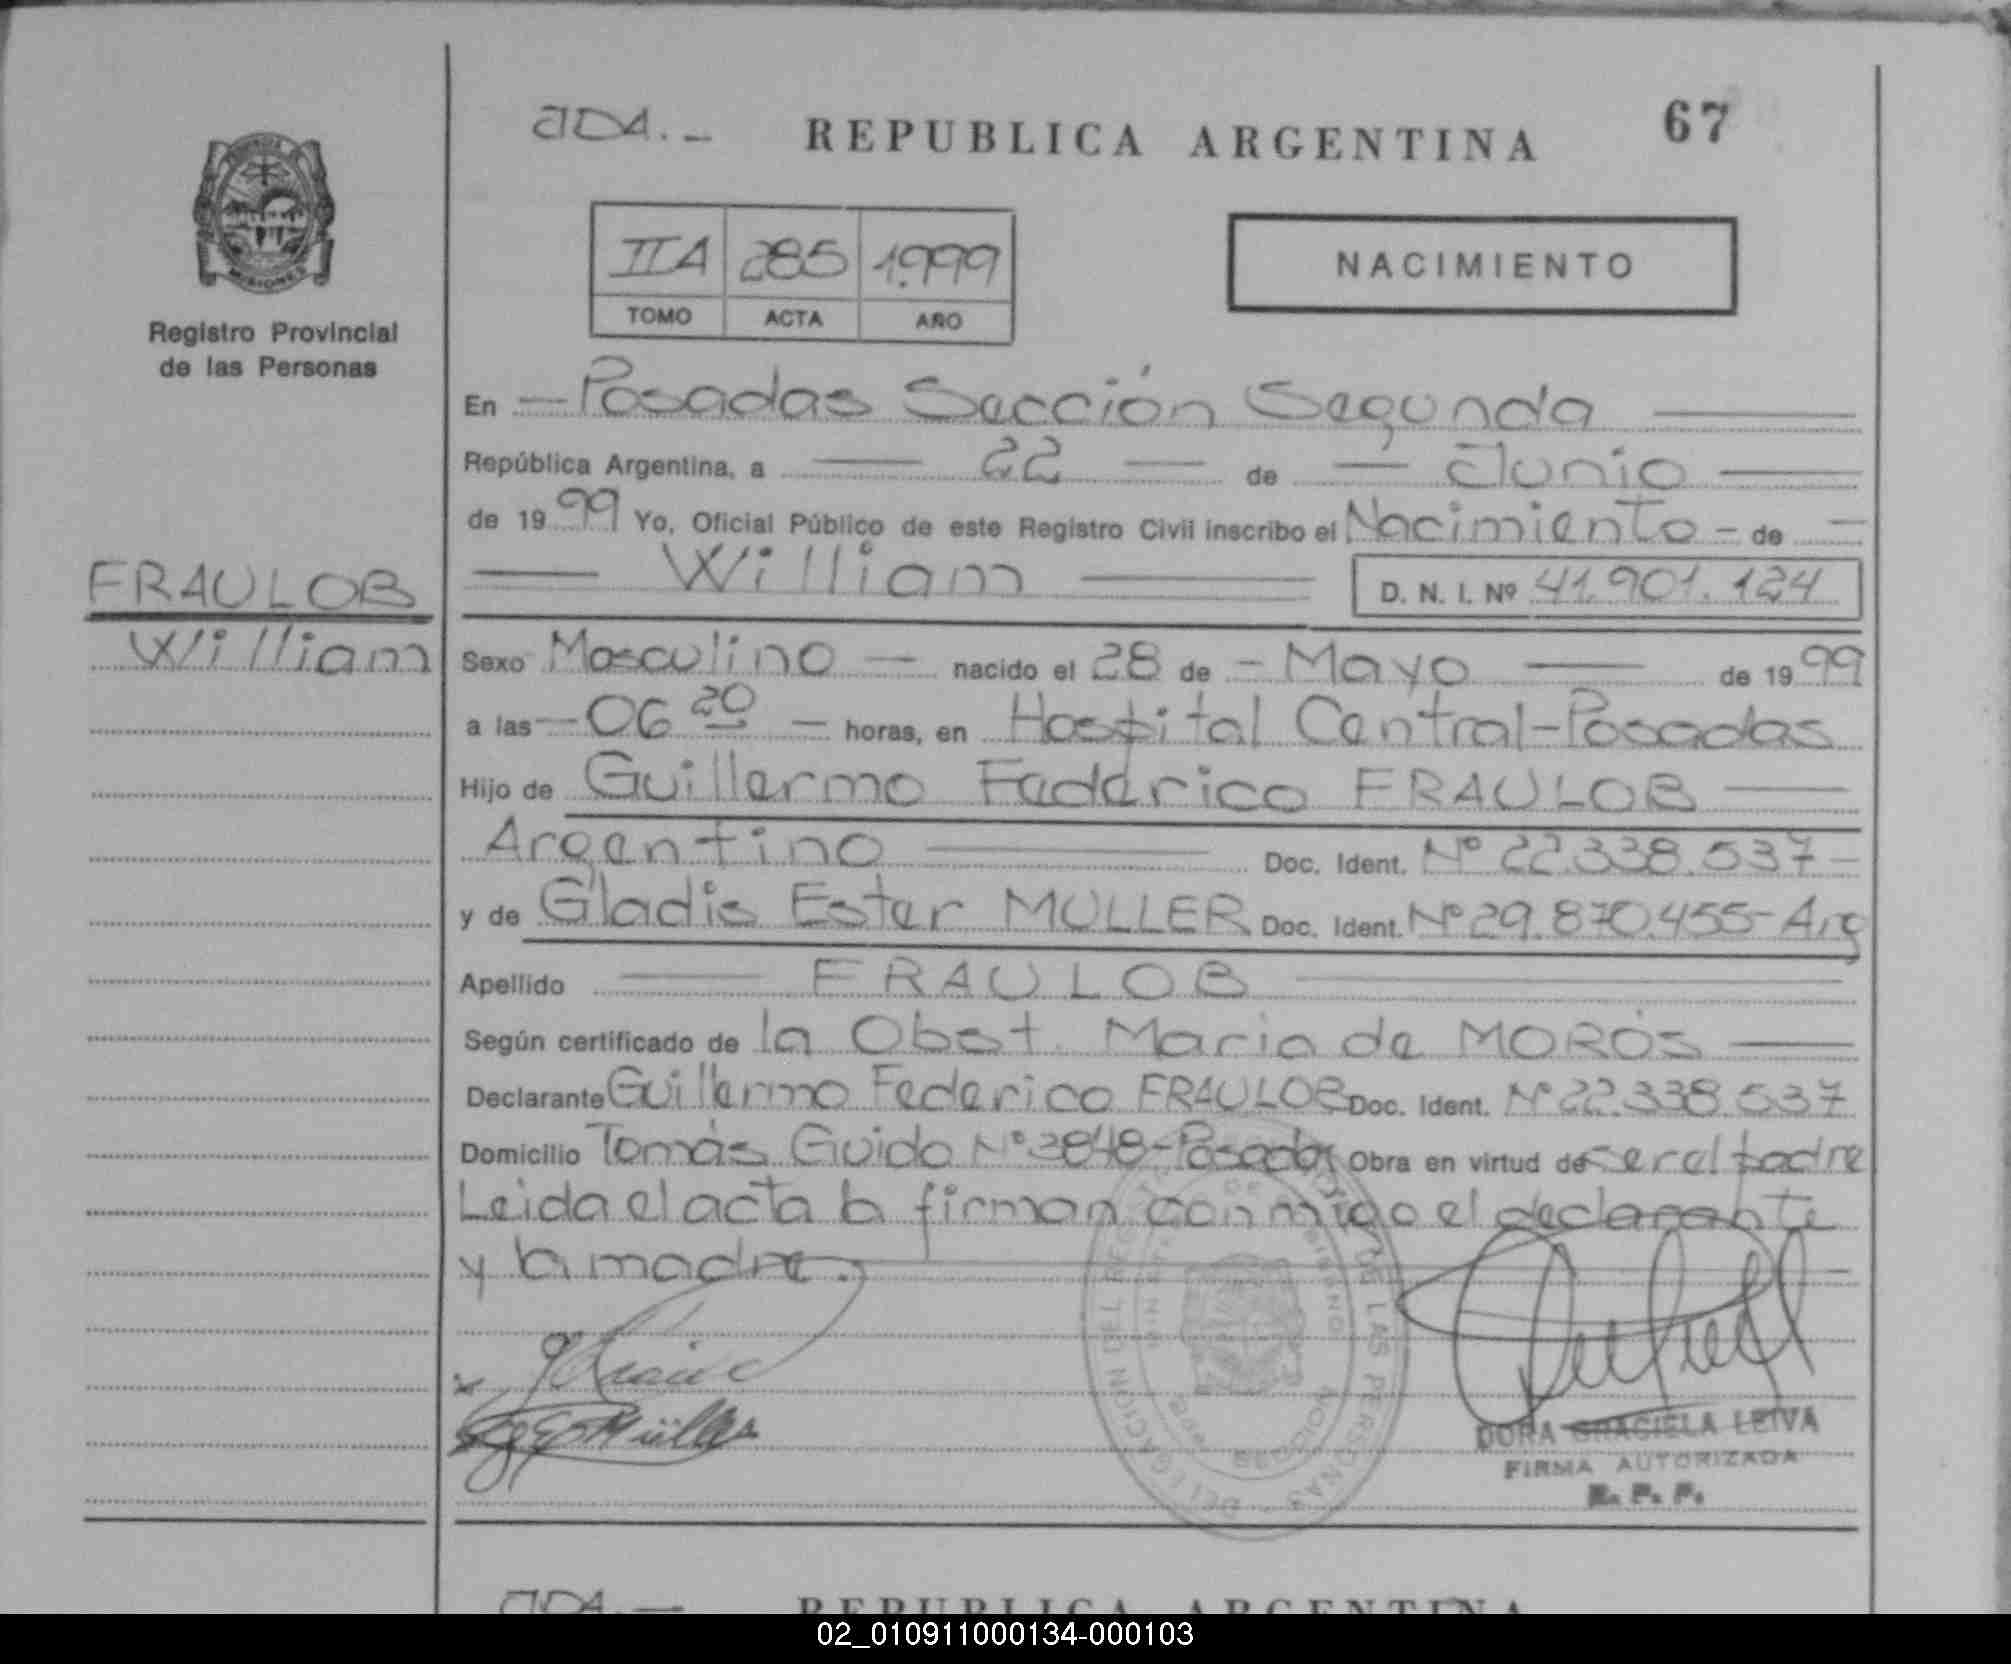 JDA.- REPUBLICA ARGENTINA 67
MISIONES
Registro Provincial
de las Personas
IIA 285 1.999
TOMO ACTA AÑO
NACIMIENTO
En Posadas Sección Segunda
República Argentina, a 22 de Junio
de 1999 Yo, Oficial Público de este Registro Civil inscribo el Nacimiento - de
William D. N. I. Nº 41.901.124
FRAULOB
William
Sexo Masculino nacido el 28 de Mayo de 1999
a las 06 20 horas, en Hospital Central-Posadas
Hijo de Guillermo Federico FRAULOB
Argentino Doc. Ident. Nº 22.338.537-
y de Gladis Ester MULLER Doc. Ident. Nº 29.870.455-Arg
Apellido FRAULOB
Según certificado de la Obst. Maria de MORÓS
Declarante Guillermo Federico FRAULOB Doc. Ident. Nº 22.338.537
Domicilio Tomás Guido Nº 3848-Posadas Obra en virtud de ser el padre
Leida el acta la firman conmigo el declarante
y la madre.
DELEGACION DEL REGISTRO DE LAS PERSONAS
MISIONES
DORA GRACIELA LEIVA
FIRMA AUTORIZADA
R. P. P.
JDA.- REPUBLICA ARGENTINA
02_010911000134-000103